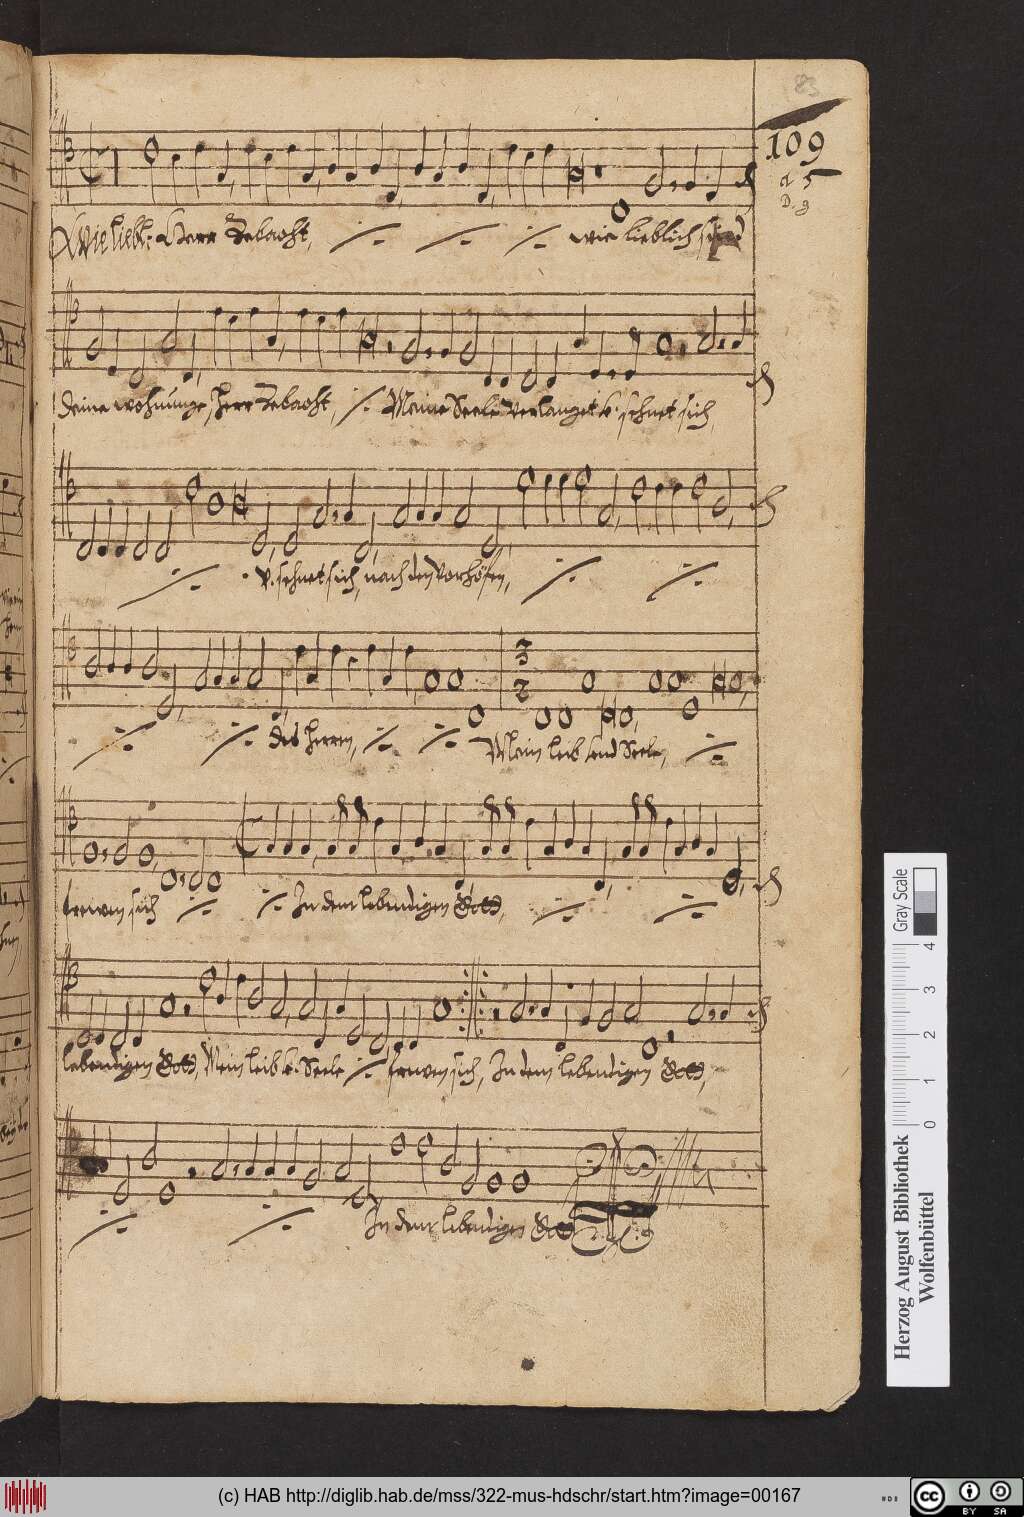 83
109
a 5
D. g
Wie liebl: Herr Zebaoht, wie lieblich sind
deine wohnunge, Herr Zebaoht, Meine Seele verlanget v. sehnet sich,
v. sehnet sich, nach den Vorhöfen,
des Herren, Mein leib und Seele,
frewen sich In dem lebendigen Gott,
lebendigen Gott, Mein leib v. Seele frewen sich, In dem lebendigen Gott,
In dem lebendigen Gott
Gray Scale
0 1 2 3 4
Herzog August Bibliothek
Wolfenbüttel
(c) HAB http://diglib.hab.de/mss/322-mus-hdschr/start.htm?image=00167
HAB
cc BY SA